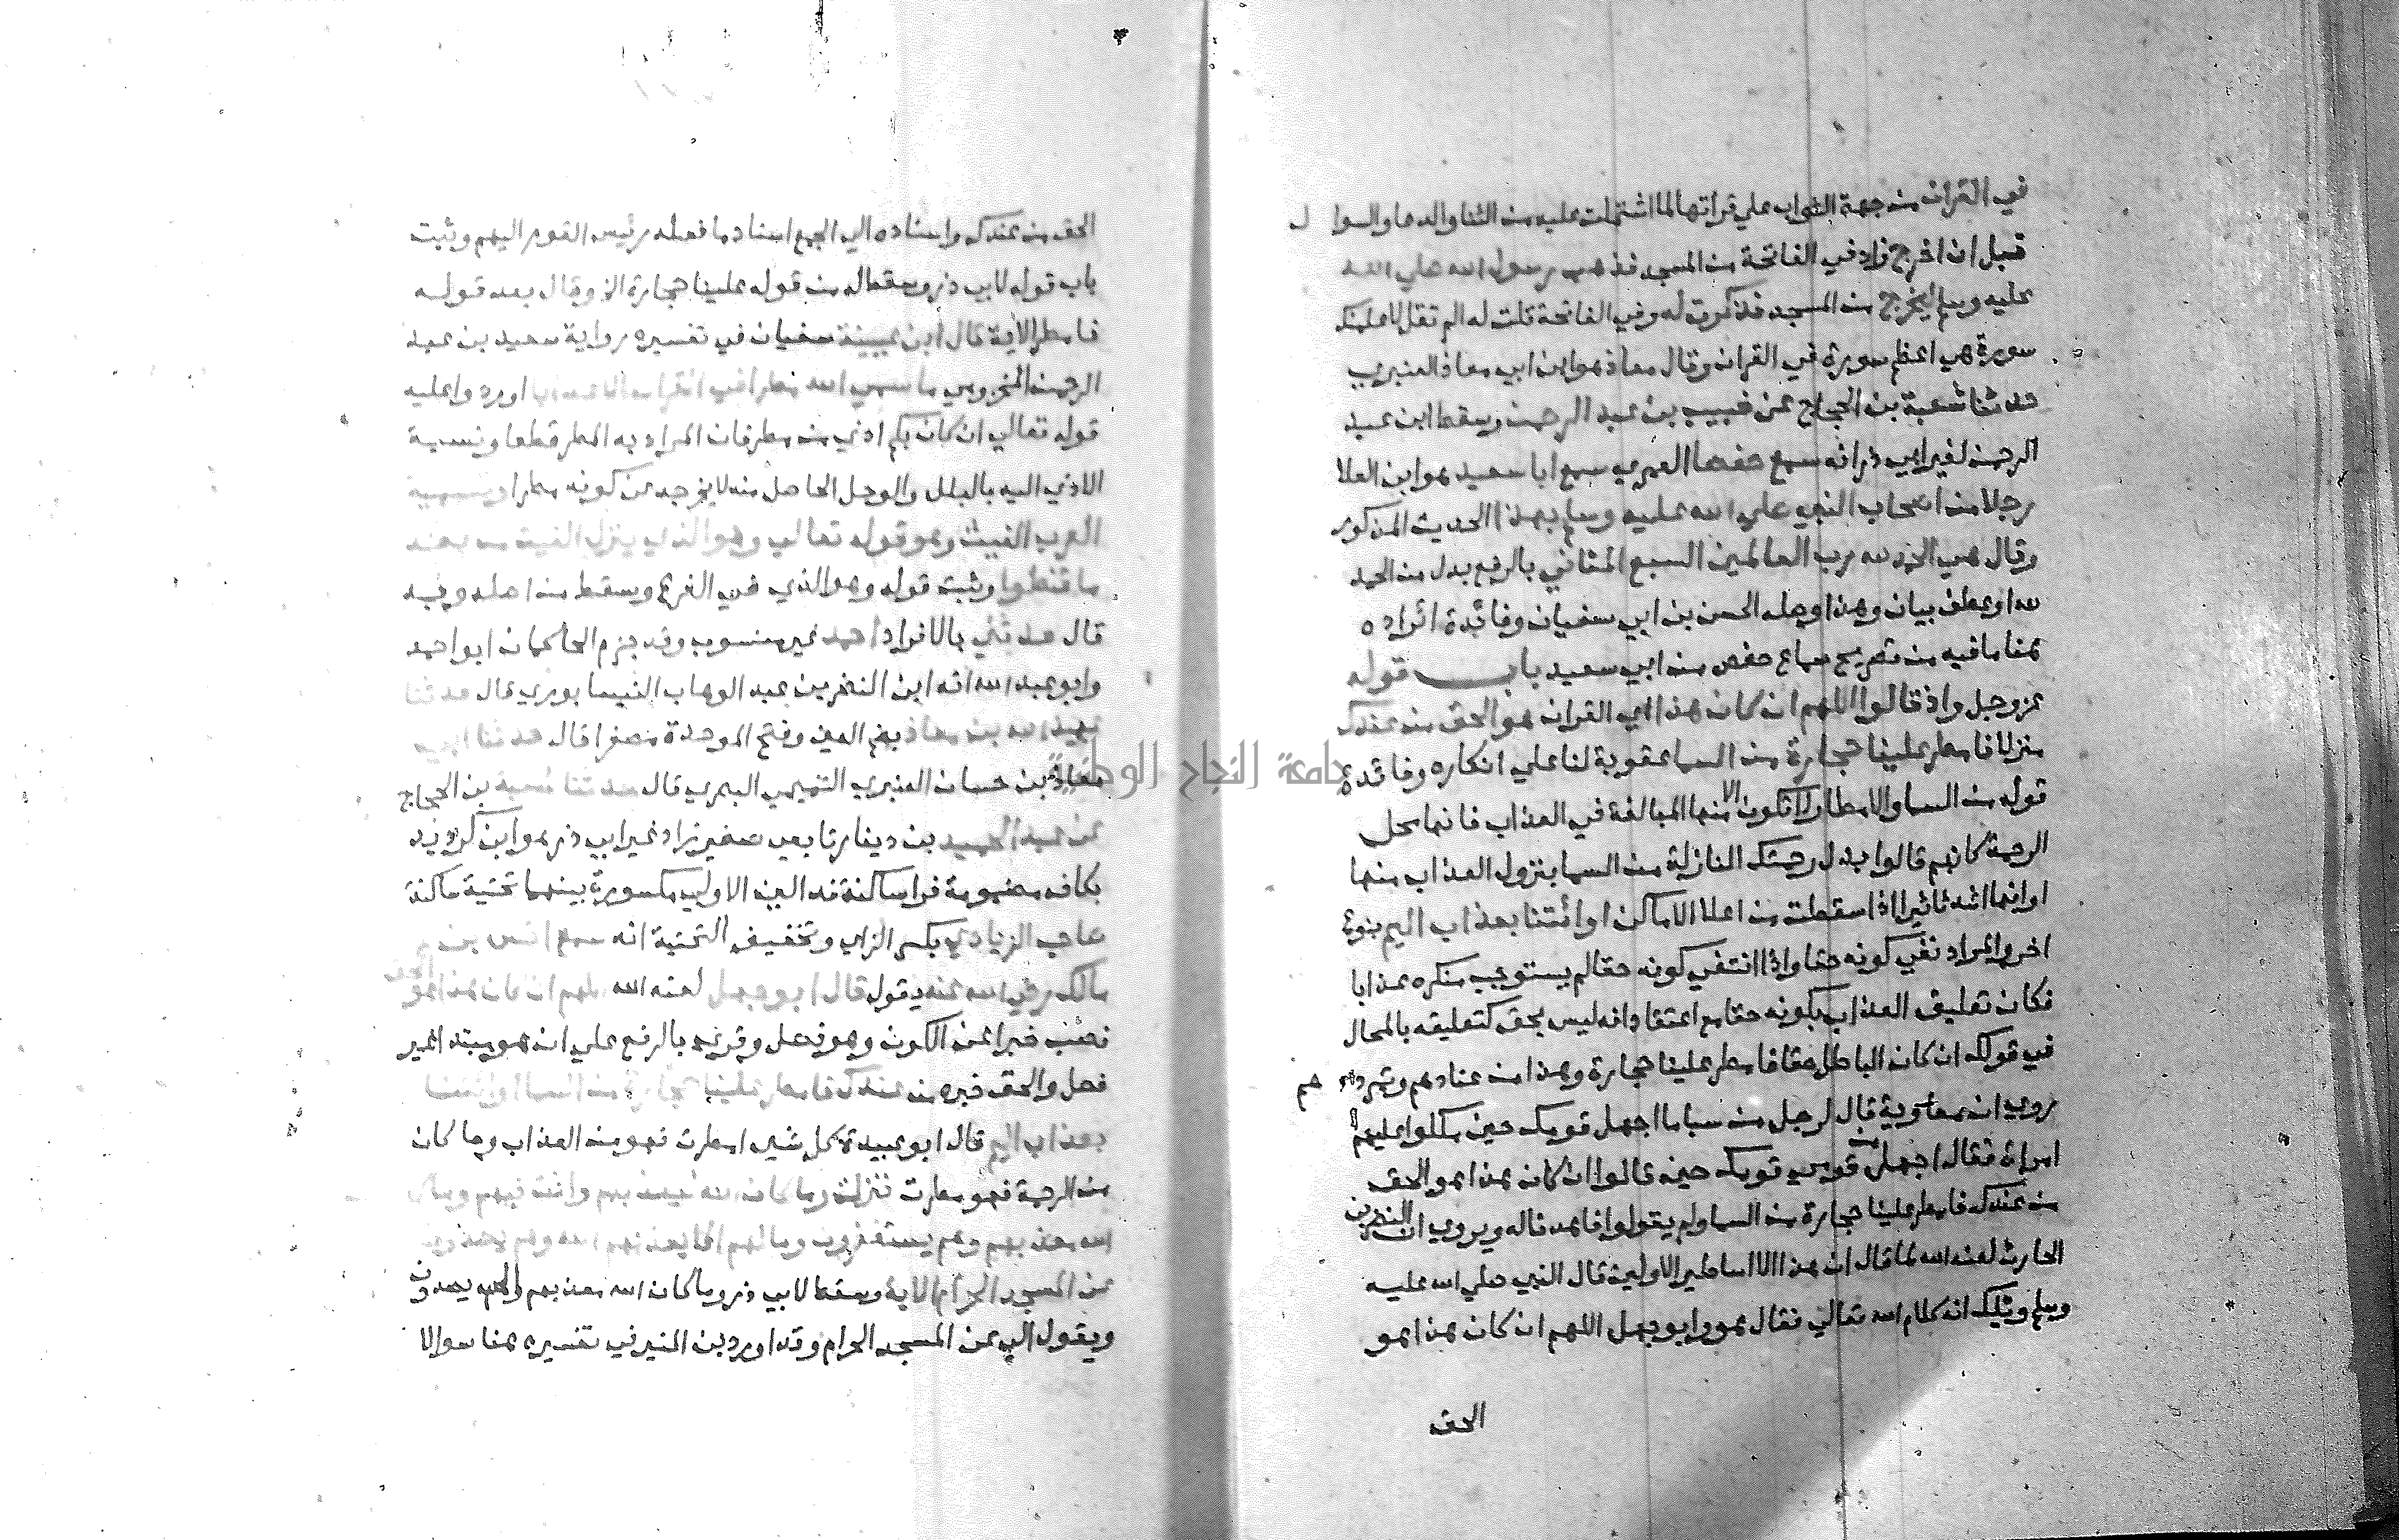 في القران من جهة الثواب علي قراتها لما اشتملت عليه من الثنا والدعا والسوال
قبل ان اخرج زاد في الفاتحة من المسجد فذهب رسول الله صلي الله
عليه وسلم ليخرج من المسجد فذكرت له وفي الفاتحة قلت له الم تقل لاعلمنك
سورة هي اعظم سورة في القران وقال معاذ هو ابن ابي معاذ العنبري
حدثنا شعبة بن الحجاج عن خبيب بن عبد الرحمن وسقط ابن عبد
الرحمن لغير ابي ذر انه سمع حفصا العمري سمع ابا سعيد هو ابن العلا
رجلا من اصحاب النبي صلي الله عليه وسلم بهذا الحديث المذكور
وقال هي الحمد لله رب العالمين السبع المثاني بالرفع بدل من الحمد
لله او عطف بيان وهذا وصله الحسن بن ابي سفيان وفائدة ايراده
هنا ما فيه من تصريح سماع حفص من ابي سعيد باب قوله
عز وجل واذ قالوا اللهم ان كان هذا اي القران هو الحق من عندك
منزلا فامطر علينا حجارة من السما عقوبة لنا علي انكاره وفائدة
قوله من السما والامطار لا تكون الا منها المبالغة في العذاب فانها محل
الرحمة كانهم قالوا بدل رحمتك النازلة من السما بنزول العذاب منها
او انها اشد تاثيرا اذا سقطت من اعلا الاماكن او ائتنا بعذاب اليم بنوع
اخر والمراد نفي كونه حقا واذا انتفي كونه حقا لم يستوجب منكره عذابا
فكان تعليق العذاب بكونه حقا مع اعتقاد انه ليس بحق كتعليقه بالمحال
في قولك ان كان الباطل حقا فامطر علينا حجارة وهذا من عنادهم وتمردهم
روي ان معاوية قال لرجل من سبا ما اجهل قومك حين ملكوا عليهم
امراة فقال اجهل من قومي قومك حين قالوا ان كان هذا هو الحق
من عندك فامطر علينا حجارة من السما ولم يقولوا فاهدنا له ويروي ان النضر بن
الحارث لعنه الله لما قال ان هذا الا اساطير الاولين قال النبي صلي الله عليه
وسلم ويلك انه كلام الله تعالي فقال هو وابو جهل اللهم ان كان هذا هو
الحق
الحق من عندك واسناده الي الجمع اسناد ما فعله رئيس القوم اليهم وثبت
باب قوله لابي ذر وسقط له من قوله علينا حجارة الخ وقال بعد قوله
فامطر الاية قال ابن عيينة سفيان في تفسيره رواية سعيد بن عبد
الرحمن المخزومي ما سمي الله مطرا في القران الا عذابا اورد واعليه
قوله تعالي ان كان بكم اذي من مطر فان المراد به المطر قطعا ونسبة
الاذي اليه بالبلل والوحل الحاصل منه لا يخرجه عن كونه مطرا ويسميه
العرب الغيث وهو قوله تعالي وهو الذي ينزل الغيث من بعد
ما قنطوا وثبت قوله وهو الذي في الفرع ويسقط من اصله وبه
قال حدثني بالافراد احمد غير منسوب وقد جزم الحاكمان ابو احمد
وابو عبد الله انه ابن النضر بن عبد الوهاب النيسابوري قال حدثنا
عبيد الله بن معاذ بضم العين وفتح الموحدة مصغرا قال حدثنا ابي
معاذ بن حسان العنبري التميمي البصري قال حدثنا شعبة بن الحجاج
عن عبد الحميد بن دينار تابعي صغير زاد غير ابي ذر هو ابن كرديد
بكاف مضمومة فرا ساكنة فدالين الاولي مكسورة بينهما تحتية ساكنة
صاحب الزيادي بكسر الزاي وتخفيف التحتية انه سمع انس بن
مالك رضي الله عنه يقول قال ابو جهل لعنه الله اللهم ان كان هذا هو الحق
نصب خبرا عن الكون وهو فصل وقريء بالرفع علي ان هو مبتدا غير
فصل والحق خبره من عندك فامطر علينا حجارة من السما او ائتنا
بعذاب اليم قال ابو عبيدة كل شيء امطرت فهو من العذاب وما كان
من الرحمة فهو مطرت فنزلت وما كان الله ليعذبهم وانت فيهم وما كان
الله معذبهم وهم يستغفرون وما لهم الا يعذبهم الله وهم يصدون
عن المسجد الحرام الاية وسقط لابي ذر وما كان الله معذبهم والي يصدون
ويقول الي عن المسجد الحرام وقد اورد بن المنير في تفسيره هنا سوالا
جامعة النجاح الوطنية